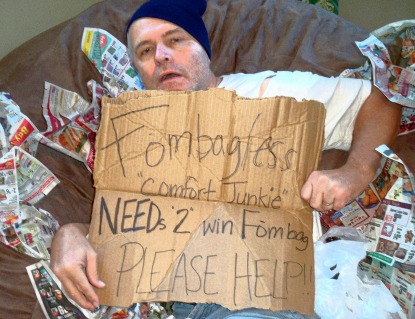 Fombagless
"Comfort Junkie"
NEEDs "2" win Fombag
PLEASE HELP!!